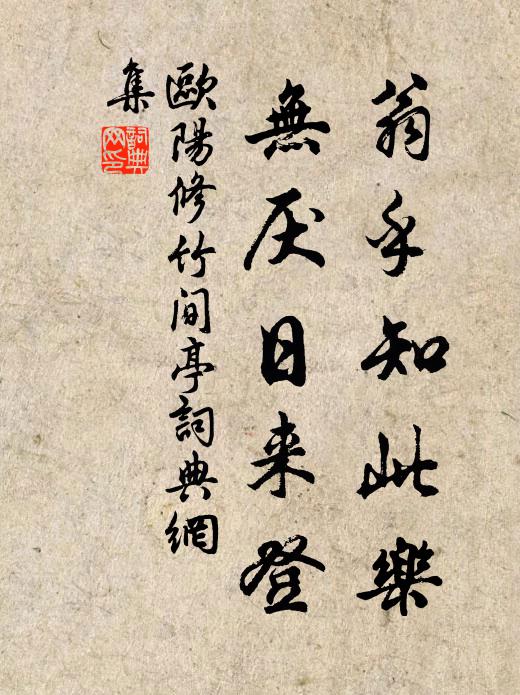 翁乎知此樂
無厌日来登
歐陽修竹间亭詞典網
集
詞典
网印